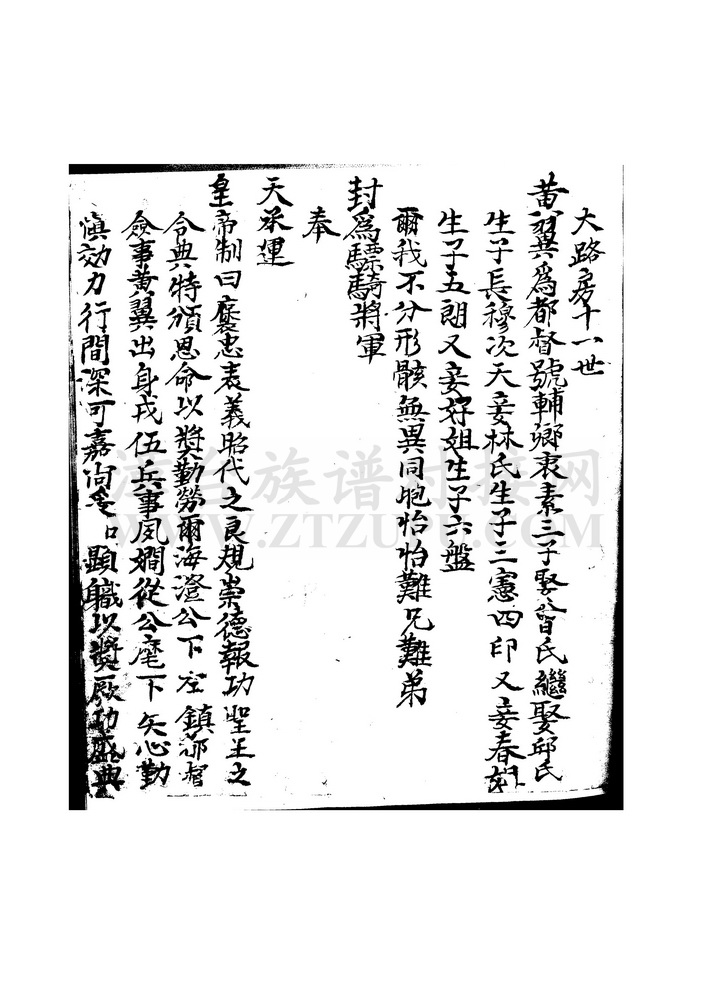 大路房十一世
黄翼爲都督號輔鄉衷素三子娶曾氏繼娶邱氏
生子長穆次天妾林氏生子三憲四印又妾春姐
生子五朗又妾好姐生子六盤
爾我不分形骸無異同胞怡怡難兄難弟
封爲驃騎將軍
奉
天承運
皇帝制曰褒忠表義昭代之良規崇德報功聖王之
令典特頒恩命以獎勤勞爾海澄公下左鎮都督
僉事黄翼出身戎伍兵事夙嫺從公麾下矢心勤
慎効力行間深可嘉尚爰 顯職以獎厥功盛典
WWW.ZTZUPU.COM